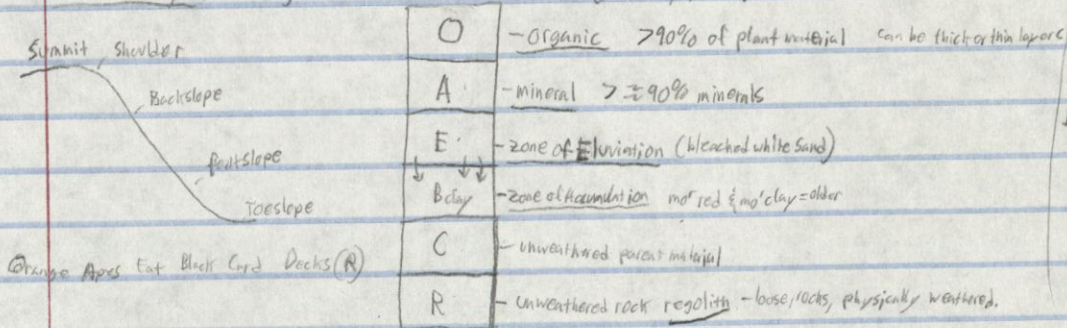 Summit Shoulder
Backslope
footslope
Toeslope
Orange Apes Eat Black Card Decks (R)
O - organic >90% of plant material can be thick or thin layers
A - mineral > ≈90% minerals
E - zone of Eluviation (bleached white sand)
↓ ↓↓
B clay - zone of Accumulation mo' red & mo' clay = older
C - unweathered parent material
R - unweathered rock regolith - loose, rocks, physically weathered.